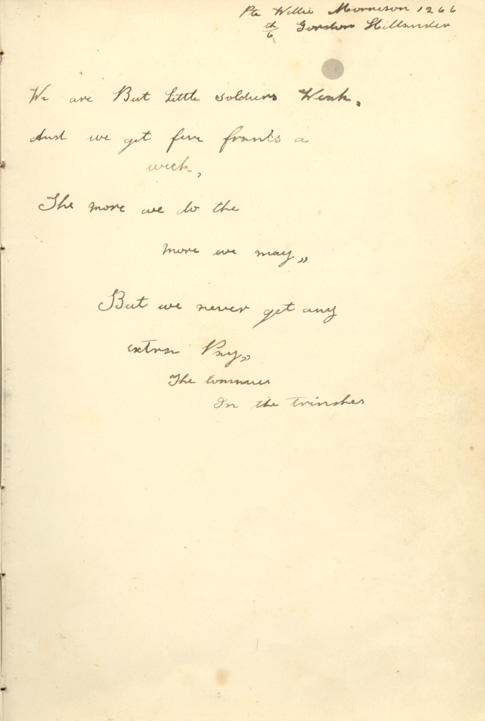 Pte Willie Morrison 1266
6th Gordon Hillander
We are But Little soldiers Weak,
And we get five franks a
week,
The more we do the
more we may,,
But we never get any
extra Pay,,
The
In the trinshes